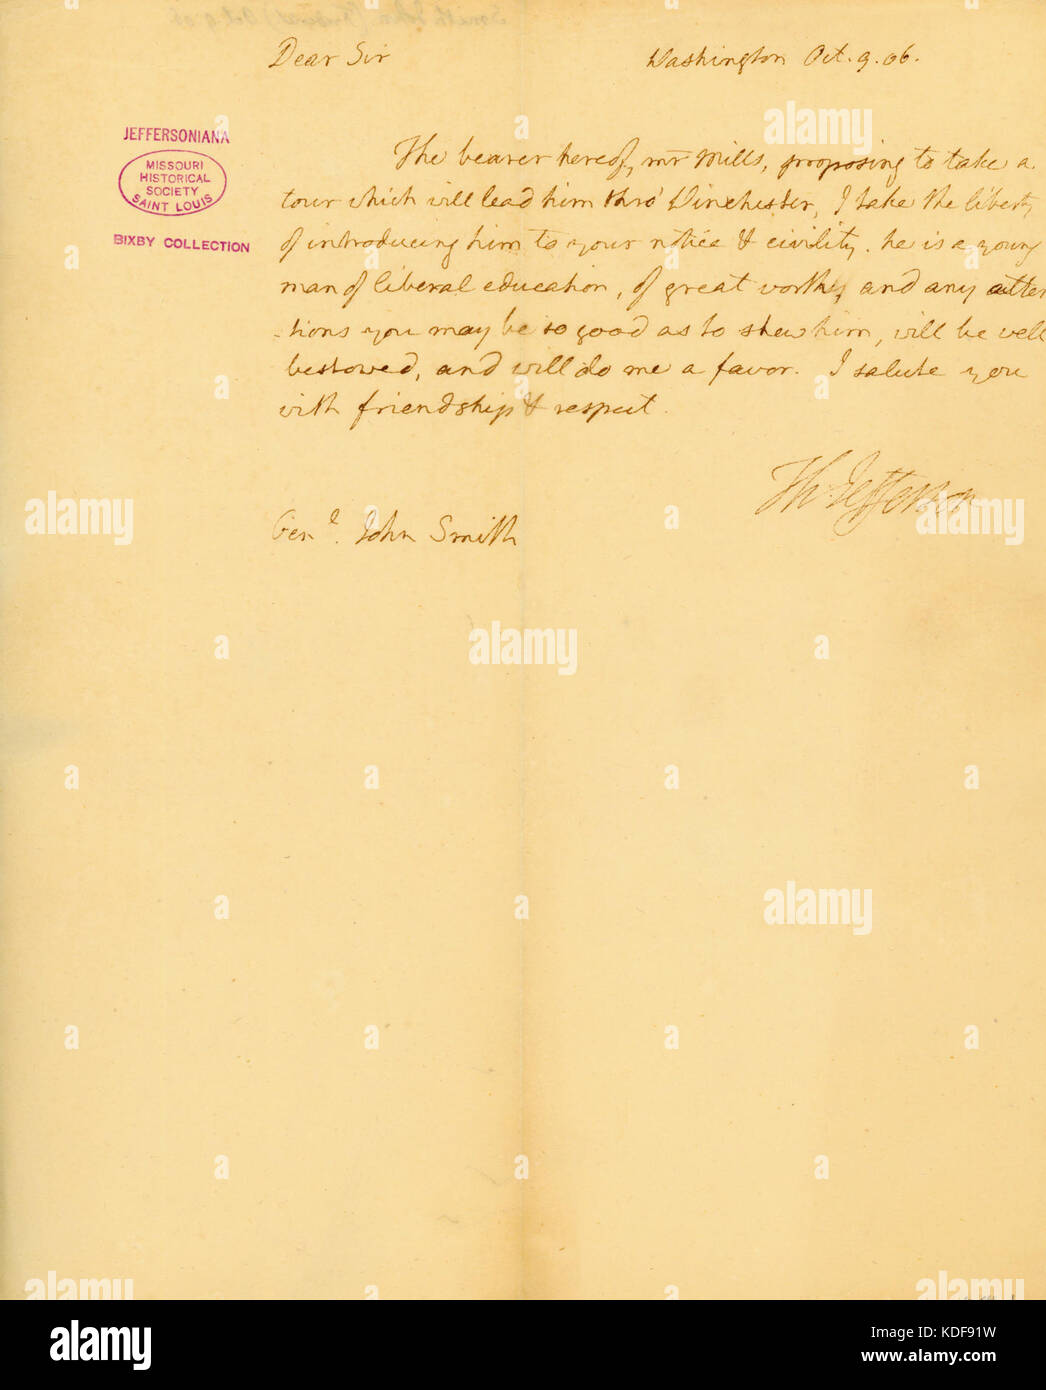 Dear Sir
Washington Oct. 9. 06.
JEFFERSONIANA
MISSOURI
HISTORICAL
SOCIETY
SAINT LOUIS
BIXBY COLLECTION
The bearer hereof, mr Mills, proposing to take a
tour which will lead him thro' Winchester, I take the liberty
of introducing him to your notice & civility. he is a young
man of liberal education, of great worth, and any atten
-tions you may be so good as to shew him, will be well
bestowed, and will do me a favor. I salute you
with friendship & respect.
Th: Jefferson
Genl. John Smith
alamy
alamy
Image ID: KDF91W
www.alamy.com